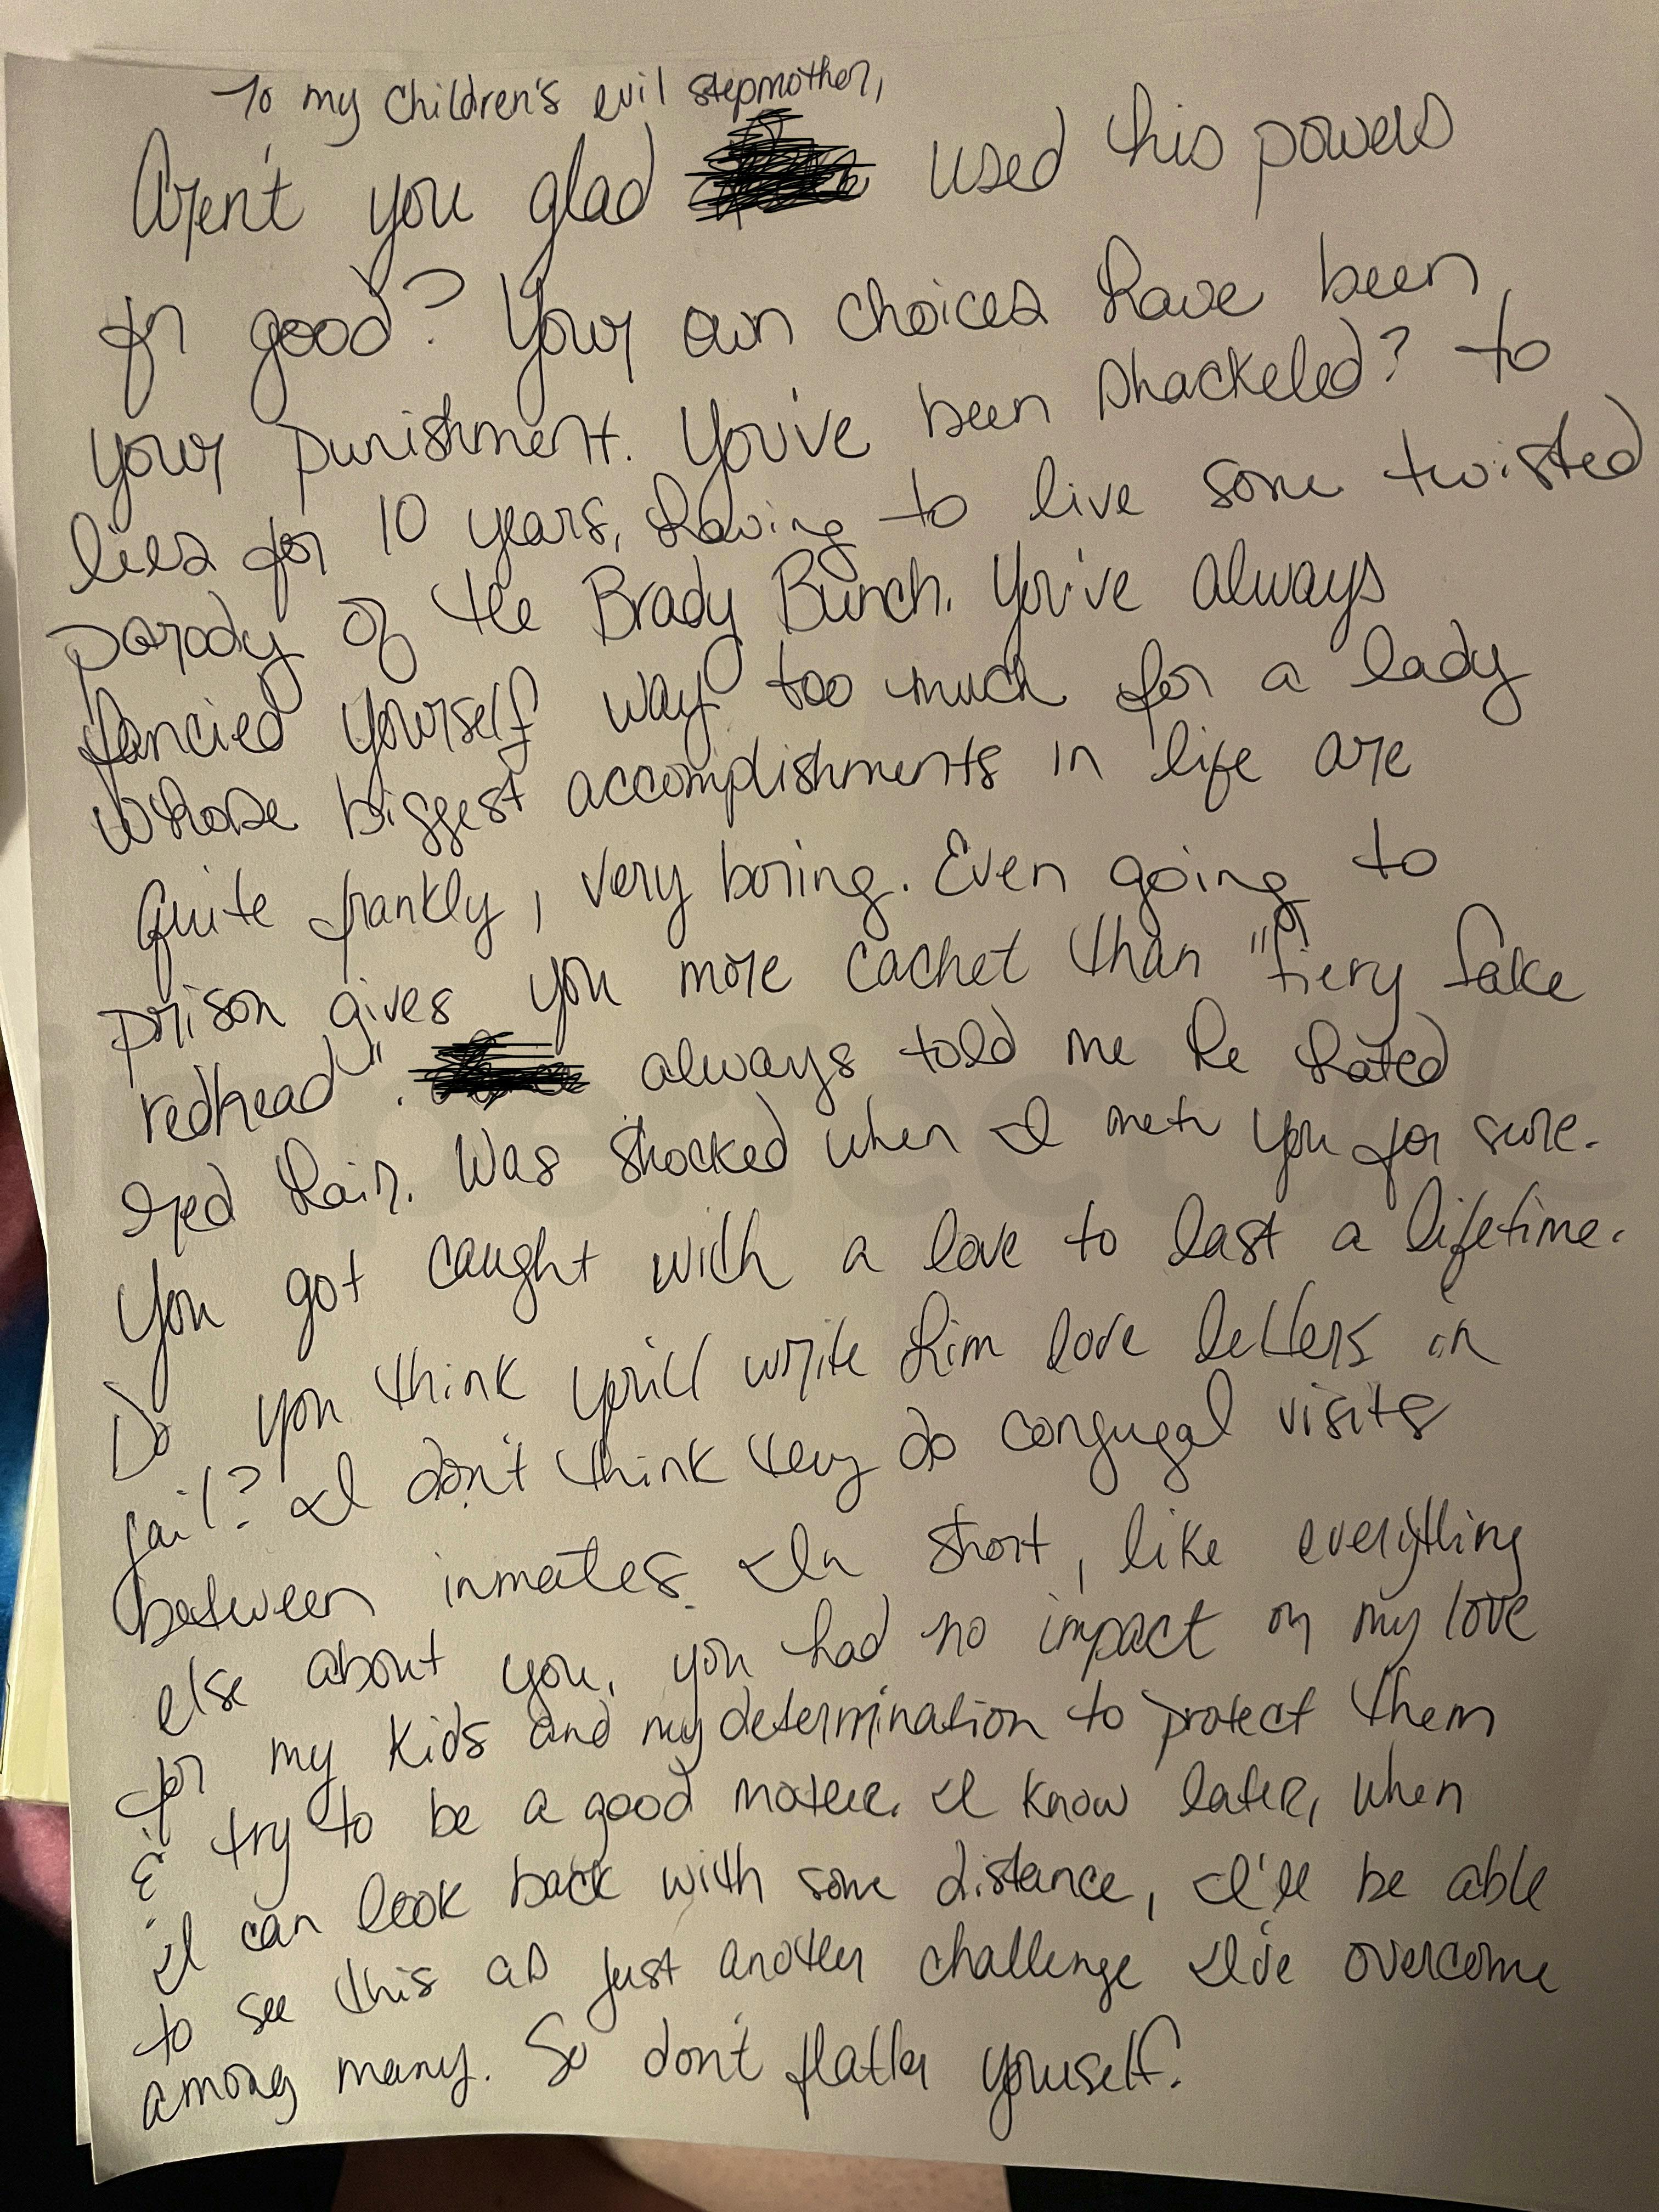 To my children's evil stepmother,
Aren't you glad used his powers
for good? Your own choices have been
your punishment. You've been shackeled? to
lies for 10 years, having to live some twisted
parody of the Brady Bunch. You've always
fancied yourself way too much for a lady
whose biggest accomplishments in life are
quite frankly, very boring. Even going to
prison gives you more cachet than "fiery fake
redhead". always told me he hated
red hair. Was shocked when I met you for sure.
You got caught with a love to last a lifetime.
Do you think you'll write him love letters in
jail? I don't think they do conjugal visits
between inmates. In short, like everything
else about you, you had no impact on my love
for my kids and my determination to protect them
& try to be a good mother. I know later, when
I can look back with some distance, I'll be able
to see this as just another challenge I've overcome
among many. So don't flatter yourself.